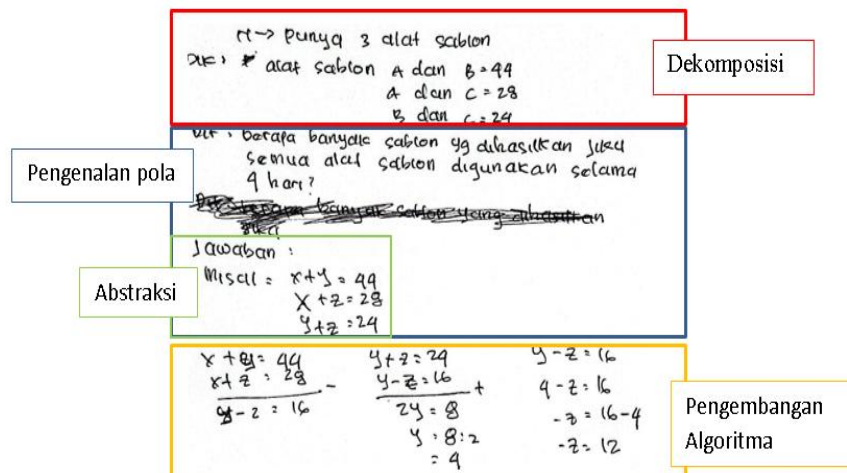 M → punya 3 alat sablon
Dik : alat sablon A dan B = 44
A dan C = 28
B dan C = 24
Dekomposisi
Dit : berapa banyak sablon yg dihasilkan jika
semua alat sablon digunakan selama
4 hari?
Pengenalan pola
Jawaban :
Misal = x + y = 44
x + z = 28
y + z = 24
Abstraksi
x + y = 44
x + z = 28 -
y - z = 16
y + z = 24
y - z = 16 +
2y = 8
y = 8 : 2
= 4
y - z = 16
4 - z = 16
- z = 16 - 4
- z = 12
Pengembangan
Algoritma